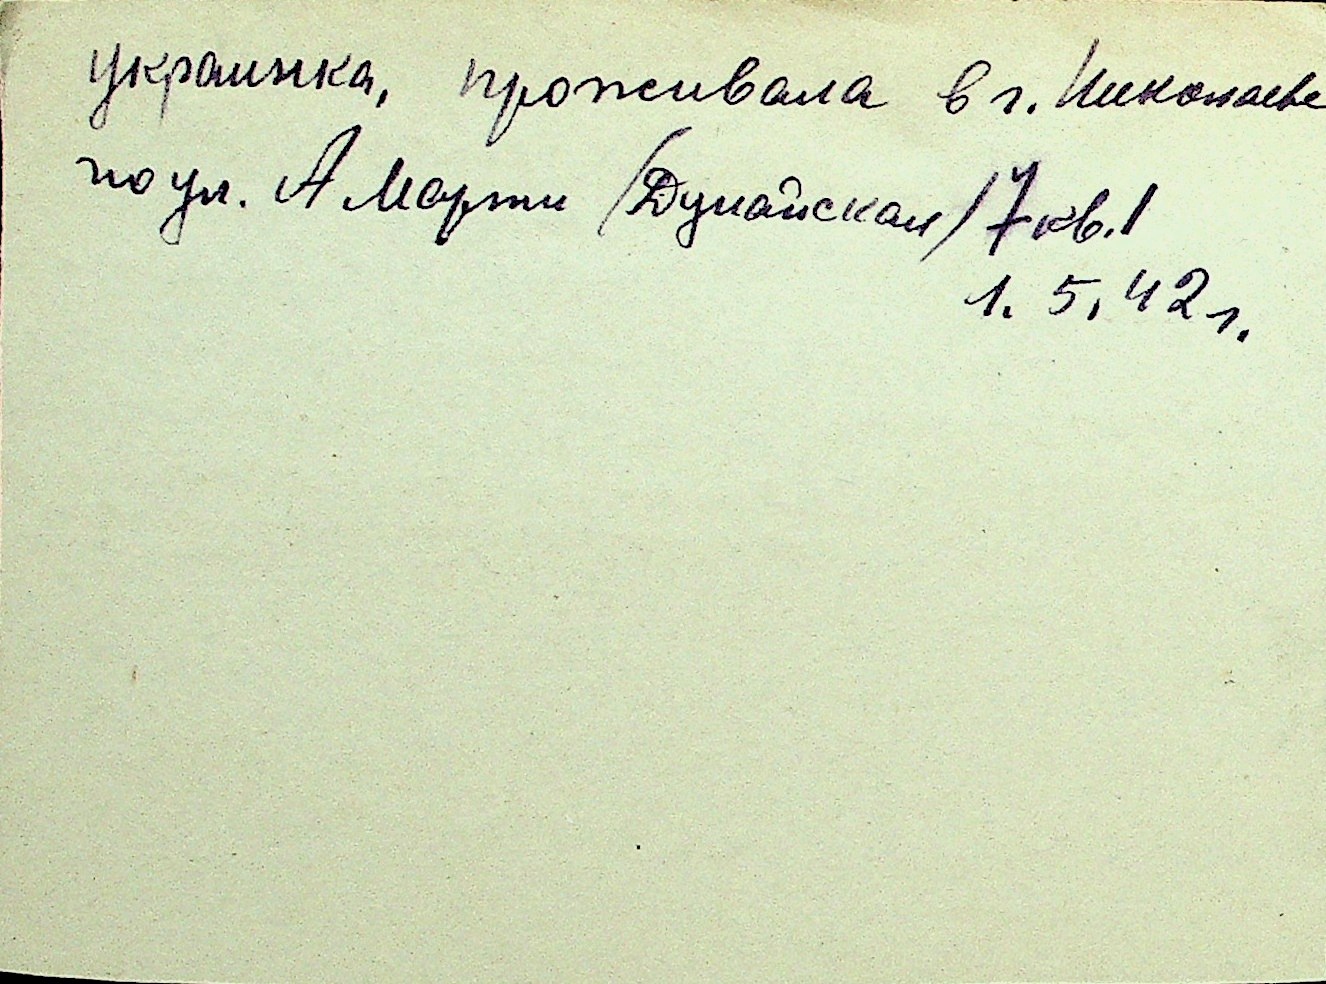 украинка, проживала в г. Николаеве
по ул. А Марти (Дунайская) 7 кв. 1
1. 5, 42 г.